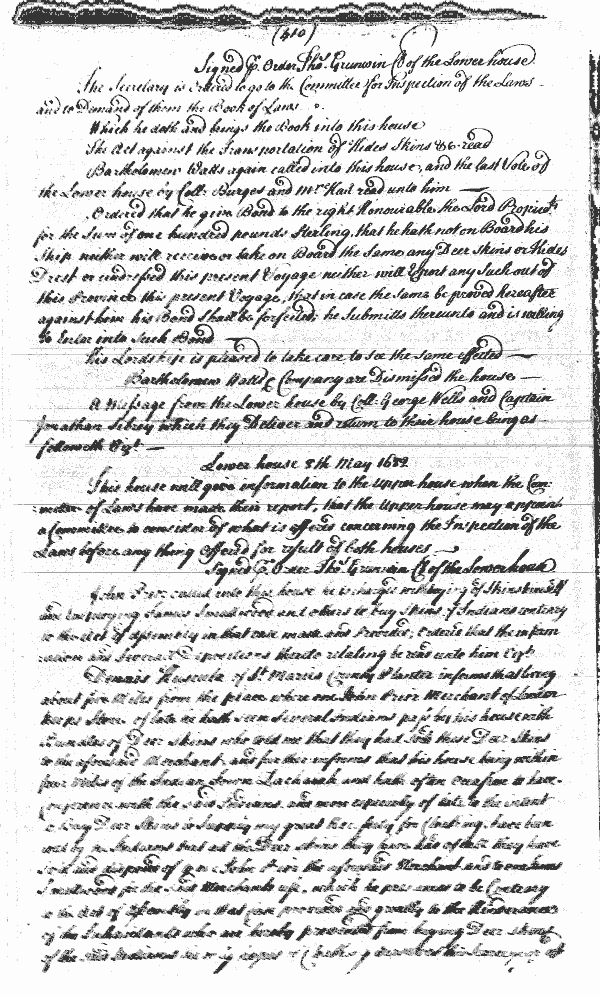 (410)
Signed p. Order Tho.s Grunwin Cl of the Lower house
The Secretary is Ordered to go to the Committee for Inspection of the Laws
and to Demand of them the Book of Laws.
Which he doth and brings the Book into this house
The Act against the Transportation of Hides Skins &c. read
Bartholomew Watts again called into this house, and the last Vote of
the Lower house by Coll: Burges and Mr. Hail read unto him
Ordered that he give Bond to the right Honourable the Lord Propriet.ry
for the Sum of one hundred pounds Sterling, that he hath not on Board his
Ship neither will receive or take on Board the Same any Deer Skins or Hides
Drest or undressed this present Voyage neither will Export any Such out of
this Province this present Voyage, that in case the Same be proved hereafter
against him his Bond Shall be forfeited; he Submitts thereunto and is willing
to Enter into Such Bond
his Lordship is pleased to take care to See the Same effected
Bartholomew Watts & Company are Dismissed the house
A Message from the Lower house by Coll. George Wells and Captain
Jonathan Sibrey which they Deliver and return to their house being as
followeth Viz.t
Lower house 8th May 1682
This house will give information to the upper house when the Com:
mittee of Laws have made their report, that the Upper house may appoint
a Committee to consider of what is offered concerning the Inspection of the
Laws before any thing Offered for result of both houses
Signed p. Order Tho.s Grunwin Cl of the Lower house
John Prior called into this house he is charged with buying of Skins himself
and Employing James Smallwood and others to buy Skins of Indians contrary
to the Act of Assembly in that case made and Provided; Ordered that the inform
ation and Several Depositions thereto relating be read unto him Viz.t
Dennis Huscula of St. Maries County Planter informs that living
about five Miles from the place where one John Prior Merchant of London
keeps Store, of late hath seen Several Indians pass by his house with
Bundles of Deer Skins who told me that they had Sold these Deer Skins
to the aforesaid Merchant, and further informs that his house being within
four Miles of the Indian Town and hath often Occasion to have
Conference with the said Indians, and more especially of late to the intent
to buy Deer Skins to Supply my great for Cloathing, have been
told by Indians that all the Deer Skins they have had of late they have
Sold and disposed of John Prior the aforesaid Merchant and to one James
Smallwood for the said Merchants use, which he presumes to be Contrary
to the Act of Assembly in that case provided and greatly to the Hinderance
of the Inhabitants who are hereby prevented from buying Deer Skins
of the said Indians